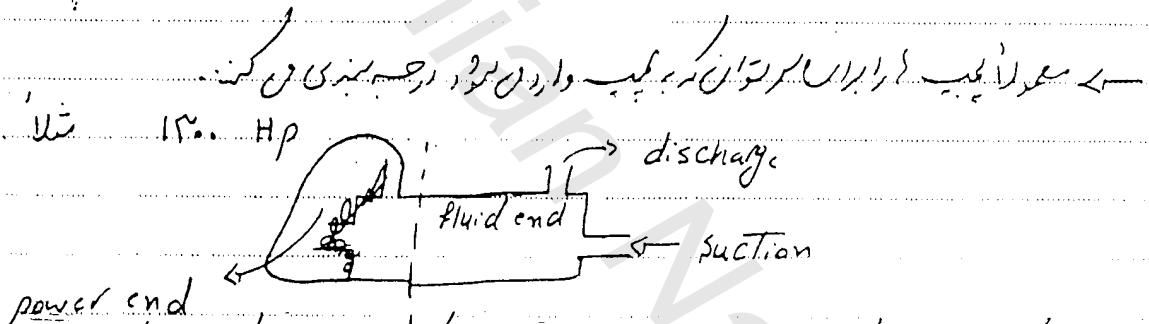 ← معمولاً پمپ ها را براساس توان که به پمپ وارد می شود، درجه بندی می کنند.
مثلاً ۱۳۰۰ Hp
discharge
fluid end
suction
power end